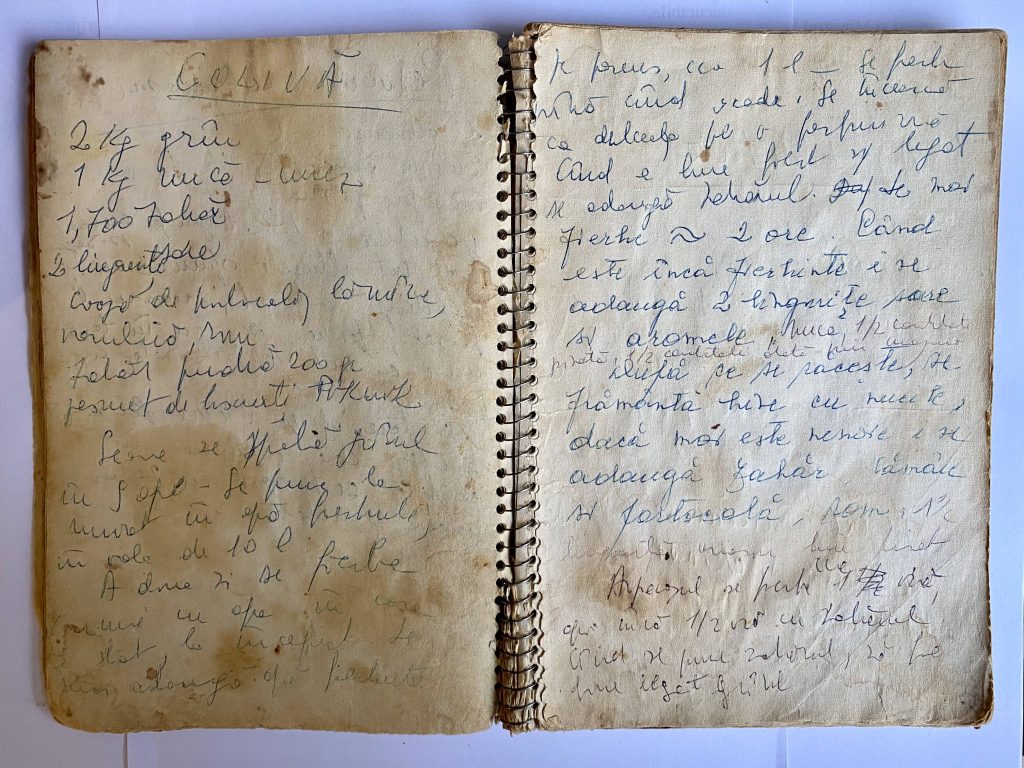 COLIVĂ
2 Kg grîu
1 Kg nucă - miez
1,700 zahăr
2 lingurițe sare
Coajă de portocală, lămîie,
vanilie, rom
Zahăr pudră 200 gr
pesmet de biscuiți
Seara se spală grîul
în 9 ape - Se pune la
muiat în apă fierbinte,
în oala de 10 l
A doua zi se fierbe
cu apa în care
a stat, la început. Se
mai adaugă apă fierbinte
pe parcurs, cca 1 l - Se fierbe
pînă cînd scade, se încearcă
ca dulceața pe o farfurie
Cînd e bine fiert și legat
se adaugă zahărul. se mai
fierbe ≈ 2 ore. Când
este încă fierbinte i se
adaugă 2 lingurițe sare
și aromele, nuca, 1/2 cantitate
pisată, 1/2 cantitate dată prin mașină
După ce se răcește, se
frămîntă bine cu nucile,
dacă mai este nevoie i se
adaugă zahăr, lămâie
și portocală, rom, 1/2
bine
Arpacașul se fierbe 1 oră,
apoi încă 1/2 oră cu zahărul
Cînd se pune zahărul, să fie
bine legat grîul